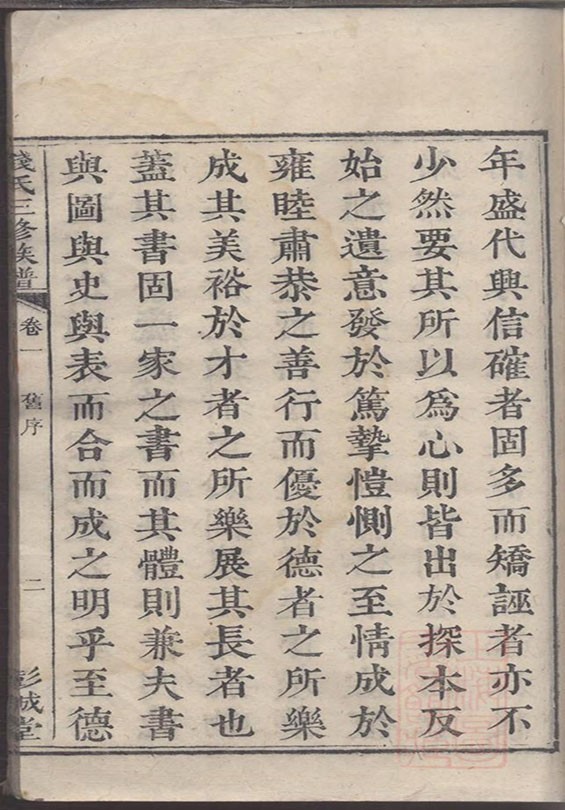 年盛代興信確者固多而矯誣者亦不
少然要其所以爲心則皆出於探本反
始之遺意發於篤摯愷惻之至情成於
雍睦肅恭之善行而優於德者之所樂
成其美裕於才者之所樂展其長者也
蓋其書固一家之書而其體則兼夫書
與圖與史與表而合而成之明乎至德
錢氏三修族譜 卷一 舊序 二 彭城堂